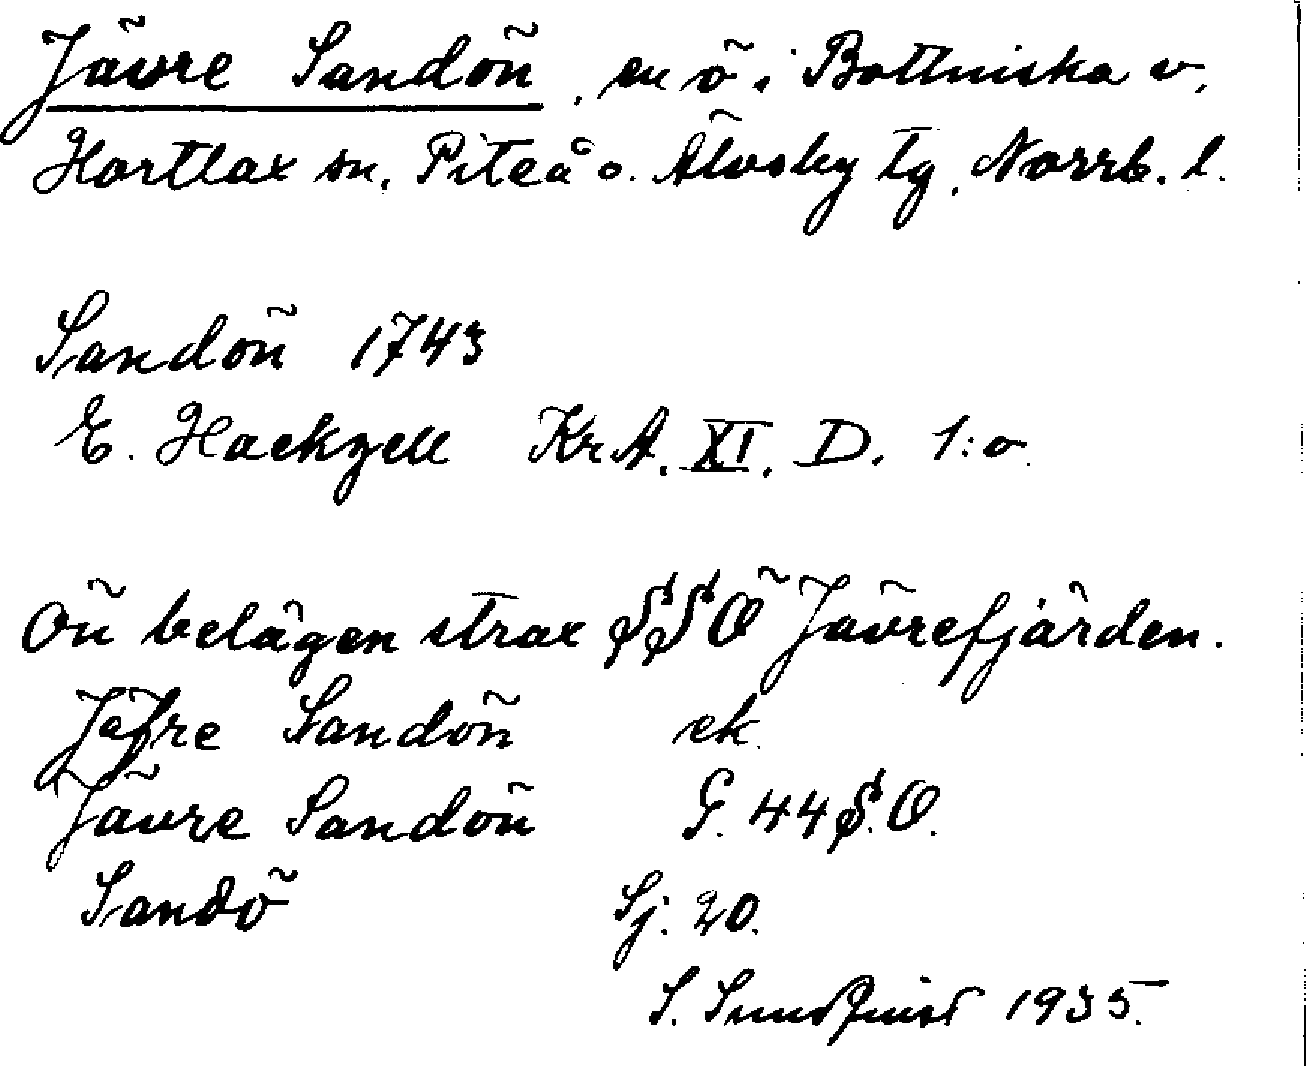 Jävre Sandön, en ö i Bottniska v.
Hortlax sn, Piteå o. Älvsby tg, Norrb. l.
Sandön 1743
E. Hackzell KrA. XI. D. 1:a
Ön belägen strax SSO Jävrefjärden.
Jäfre Sandön ek.
Jävre Sandön G. 44 S.O.
Sandö Sj. 20.
S. Sundquist 1935.